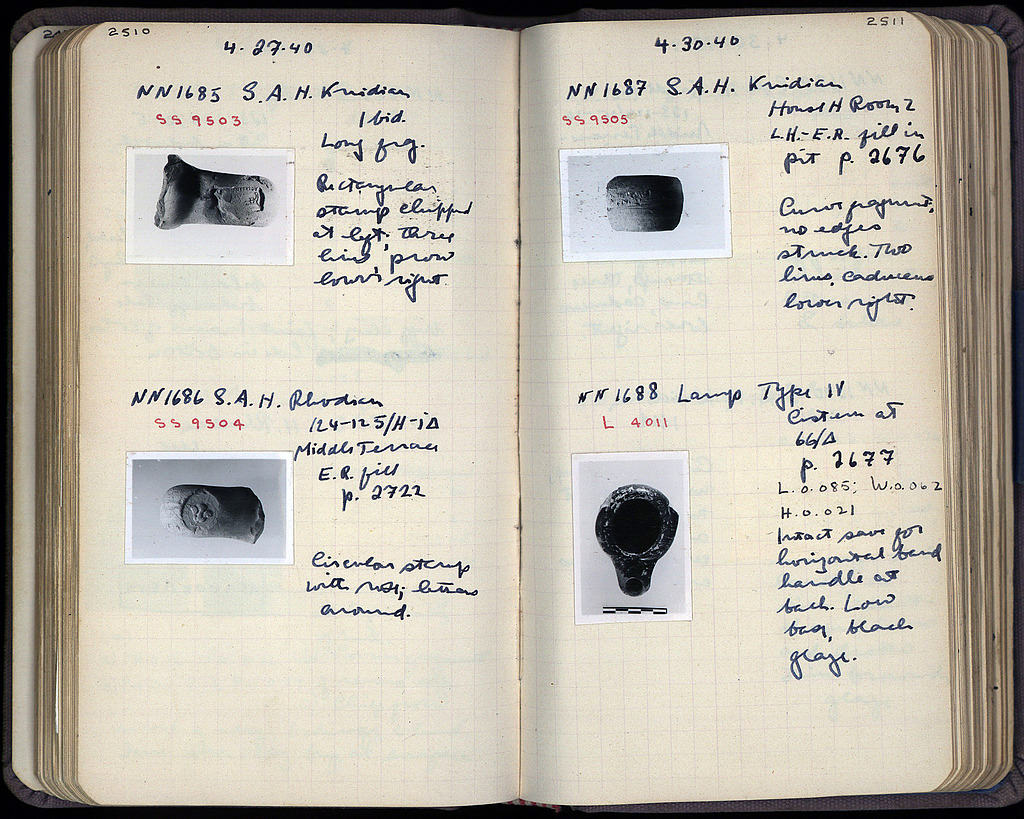 2510
4·27·40
NN1685 S.A.H. Knidian
SS 9503
Ibid.
Long frg.
Rectangular
stamp chipped
at left; three
lines, prow
lower right.
NN1686 S.A.H. Rhodian
SS 9504
124-125/H-ΙΔ
Middle Terrace
E.R. fill
p. 2722
Circular stamp
with rose; letters
around.
2511
4·30·40
NN1687 S.A.H. Knidian
SS 9505
House H Room 2
L.H.-E.R. fill in
pit p. 2676
Curved fragment,
no edges
struck. Two
lines, caduceus
lower right.
NN1688 Lamp Type IV
L 4011
Cistern at
66/Δ
p. 2677
L.0.085; W.0.062
H.0.021
Intact save for
horizontal band
handle at
back. Low
base, black
glaze.